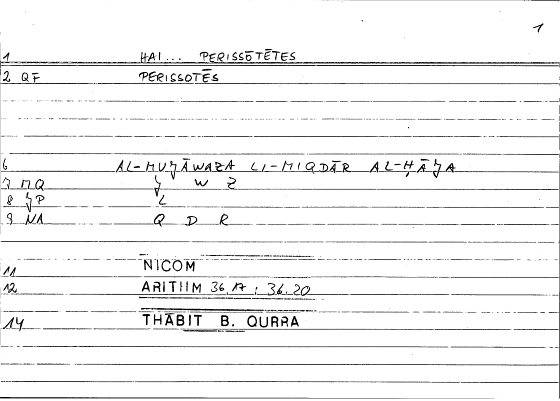 1
1 HAI... PERISSŌTĒTES
2 QF PERISSOTĒS
6 AL-MUǦĀWAZA LI-MIQDĀR AL-ḤĀǦA
7 MQ Ǧ W Z
8 ǦP L
9 NA Q D R
11 NICOM
12 ARITIIM 36.17 ; 36.20
14 THĀBIT B. QURRA